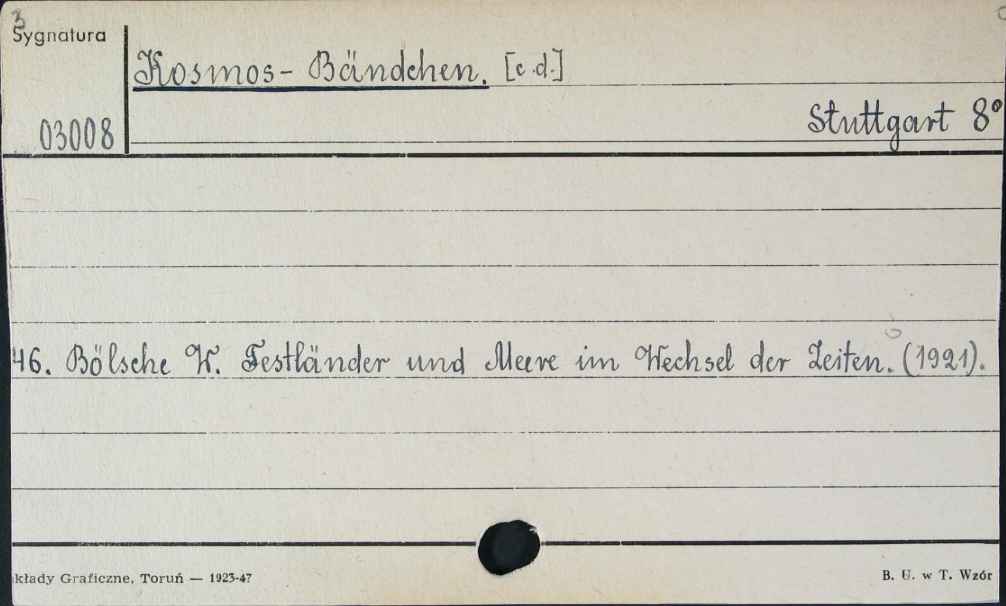 3
Sygnatura
Kosmos - Bändchen. [c.d.]
03008
Stuttgart 8°
46. Bölsche W. Festländer und Meere im Wechsel der Zeiten. (1921).
kłady Graficzne, Toruń — 1923-47
B. U. w T. Wzór